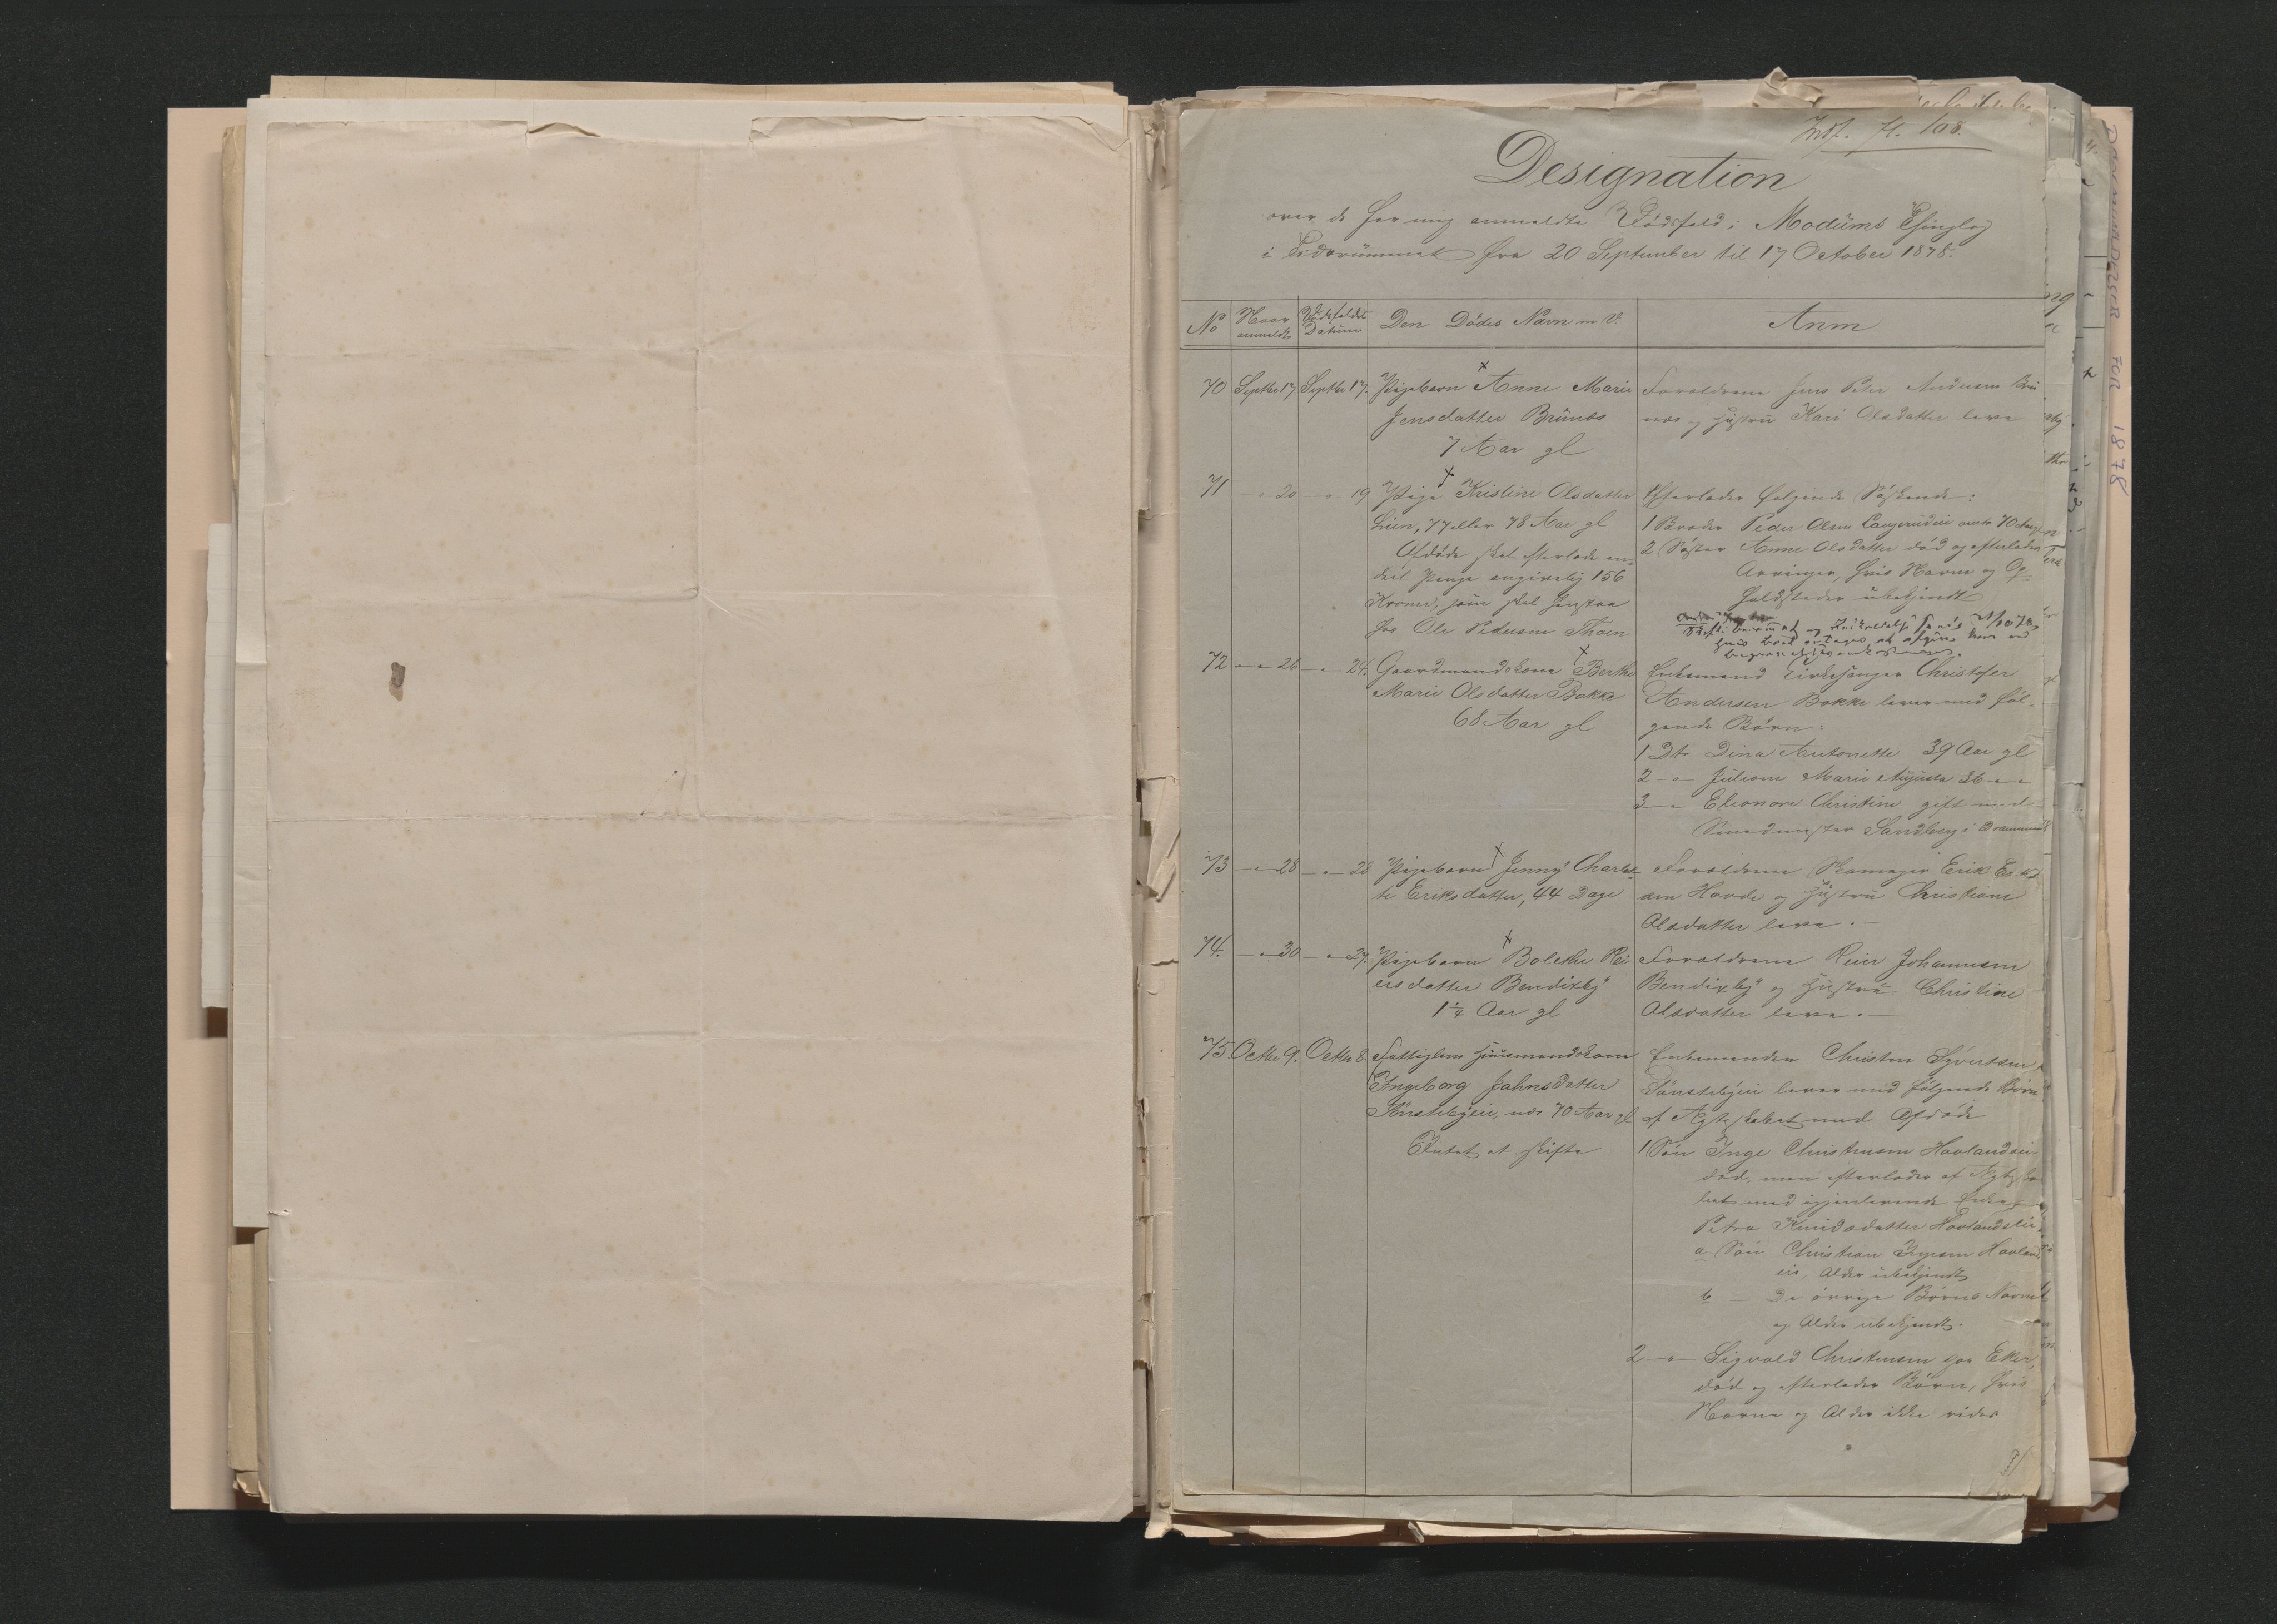 Indf. fl. 108.
Designation
over de for mig anmeldte Dødsfald i Modums Thinglag
i Tidsrummet fra 20 September til 17 October 1878.
No Naar anmeldt Dødsfaldets Datum Den Dødes Navn m. V. Anm
70 Septbr 17. Septbr 17. Pigebarn Anne Marie
Jensdatter Brunæs
7 Aar gl
Forældrene Jens Peter Andersen
næs og Hustru Kari Olsdatter leve
71 — " 20 — " 19 Pige Kristine Olsdatter
Lien, 77 eller 78 Aar gl
Afdøde skal efterlade en
deel Penge angivelig 156
Kroner, som skal henstaa
hos Ole Pedersen Thoen
Efterlader følgende Søskende:
1 Broder Peder Olsen 70 Aar
2 Søster Anne Olsdatter død og efterlader
Arvinger, hvis Navne og Op-
holdssteder ubekjendt
72 — " 26 — " 24. Gaardmandskone Berthe
Marie Olsdatter Bakke
68 Aar gl
Enkemand Kirkesanger Christofer
Andersen Bakke lever med føl-
gende Børn:
1 Dtr Dina Antonette 39 Aar gl
2 — " Juliane Marie Augusta 36 " "
3 — " Eleonore Christine gift med
Smedmester Sandberg i Drammen
73 — " 28 — " 28 Pigebarn Jenny Charlot-
te Eriksdatter, 44 Dage
Forældrene Skomager Erik
sen Hovde og Hustru Christiane
Olsdatter leve. —
74. — " 30 — " 27. Pigebarn Bolethe Rei
ersdatter Bendixby
1 1/4 Aar gl
Forældrene Reier Johannesen
Bendixby og Hustru Christine
Olsdatter leve. —
75 Octbr 9. Octbr 8. Fattiglem Huusmandskone
Ingeborg Jahnsdatter
70 Aar gl
Intet at skifte
Enkemanden Christen Syvertsen
lever med følgende Børn
af Ægteskabet med Afdøde
1 Søn Inge Christensen Hovlandseie
død, men efterlader af Ægteska
bet med igjenlevende Enke
Petra Knudsdatter Hovlandseie
a Søn Christian Ingesen Hovland
eie, Alder ubekjendt
b — De øvrige Børns Navne
og Alder ubekjendt.
2 — " Sigvald Christensen paa Eker,
død og efterlader Børn, hvis
Navne og Alder ikke vides
DØDSANMELDELSER FOR 1878